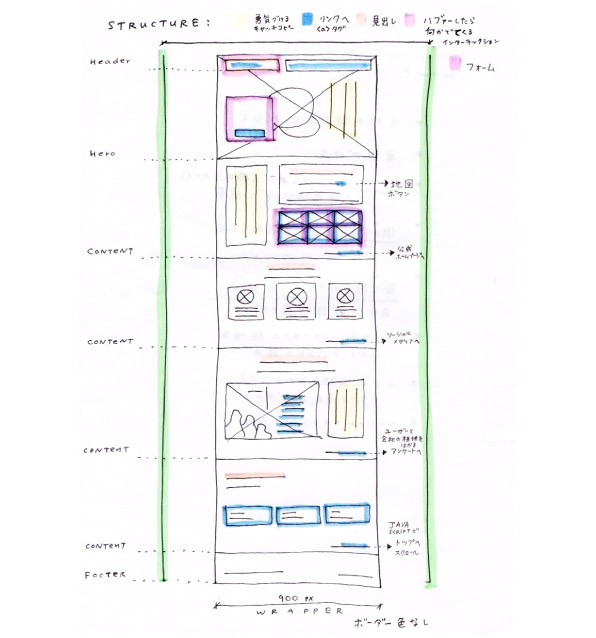 STRUCTURE:
勇気づける
キャッチコピー
リンクへ
見出し
ハブァーしたら
何かがでてくる
インターラクション
フォーム
Header
Hero
地図
ボタン
CONTENT
公式
ホームページへ
CONTENT
ソーシャル
メディアへ
ユーザーと
会社の相性を
はかる
アンケートへ
CONTENT
JAVA
SCRIPTで
トップへ
スクロール
CONTENT
FOOTER
900 px
WRAPPER
ボーダー色なし